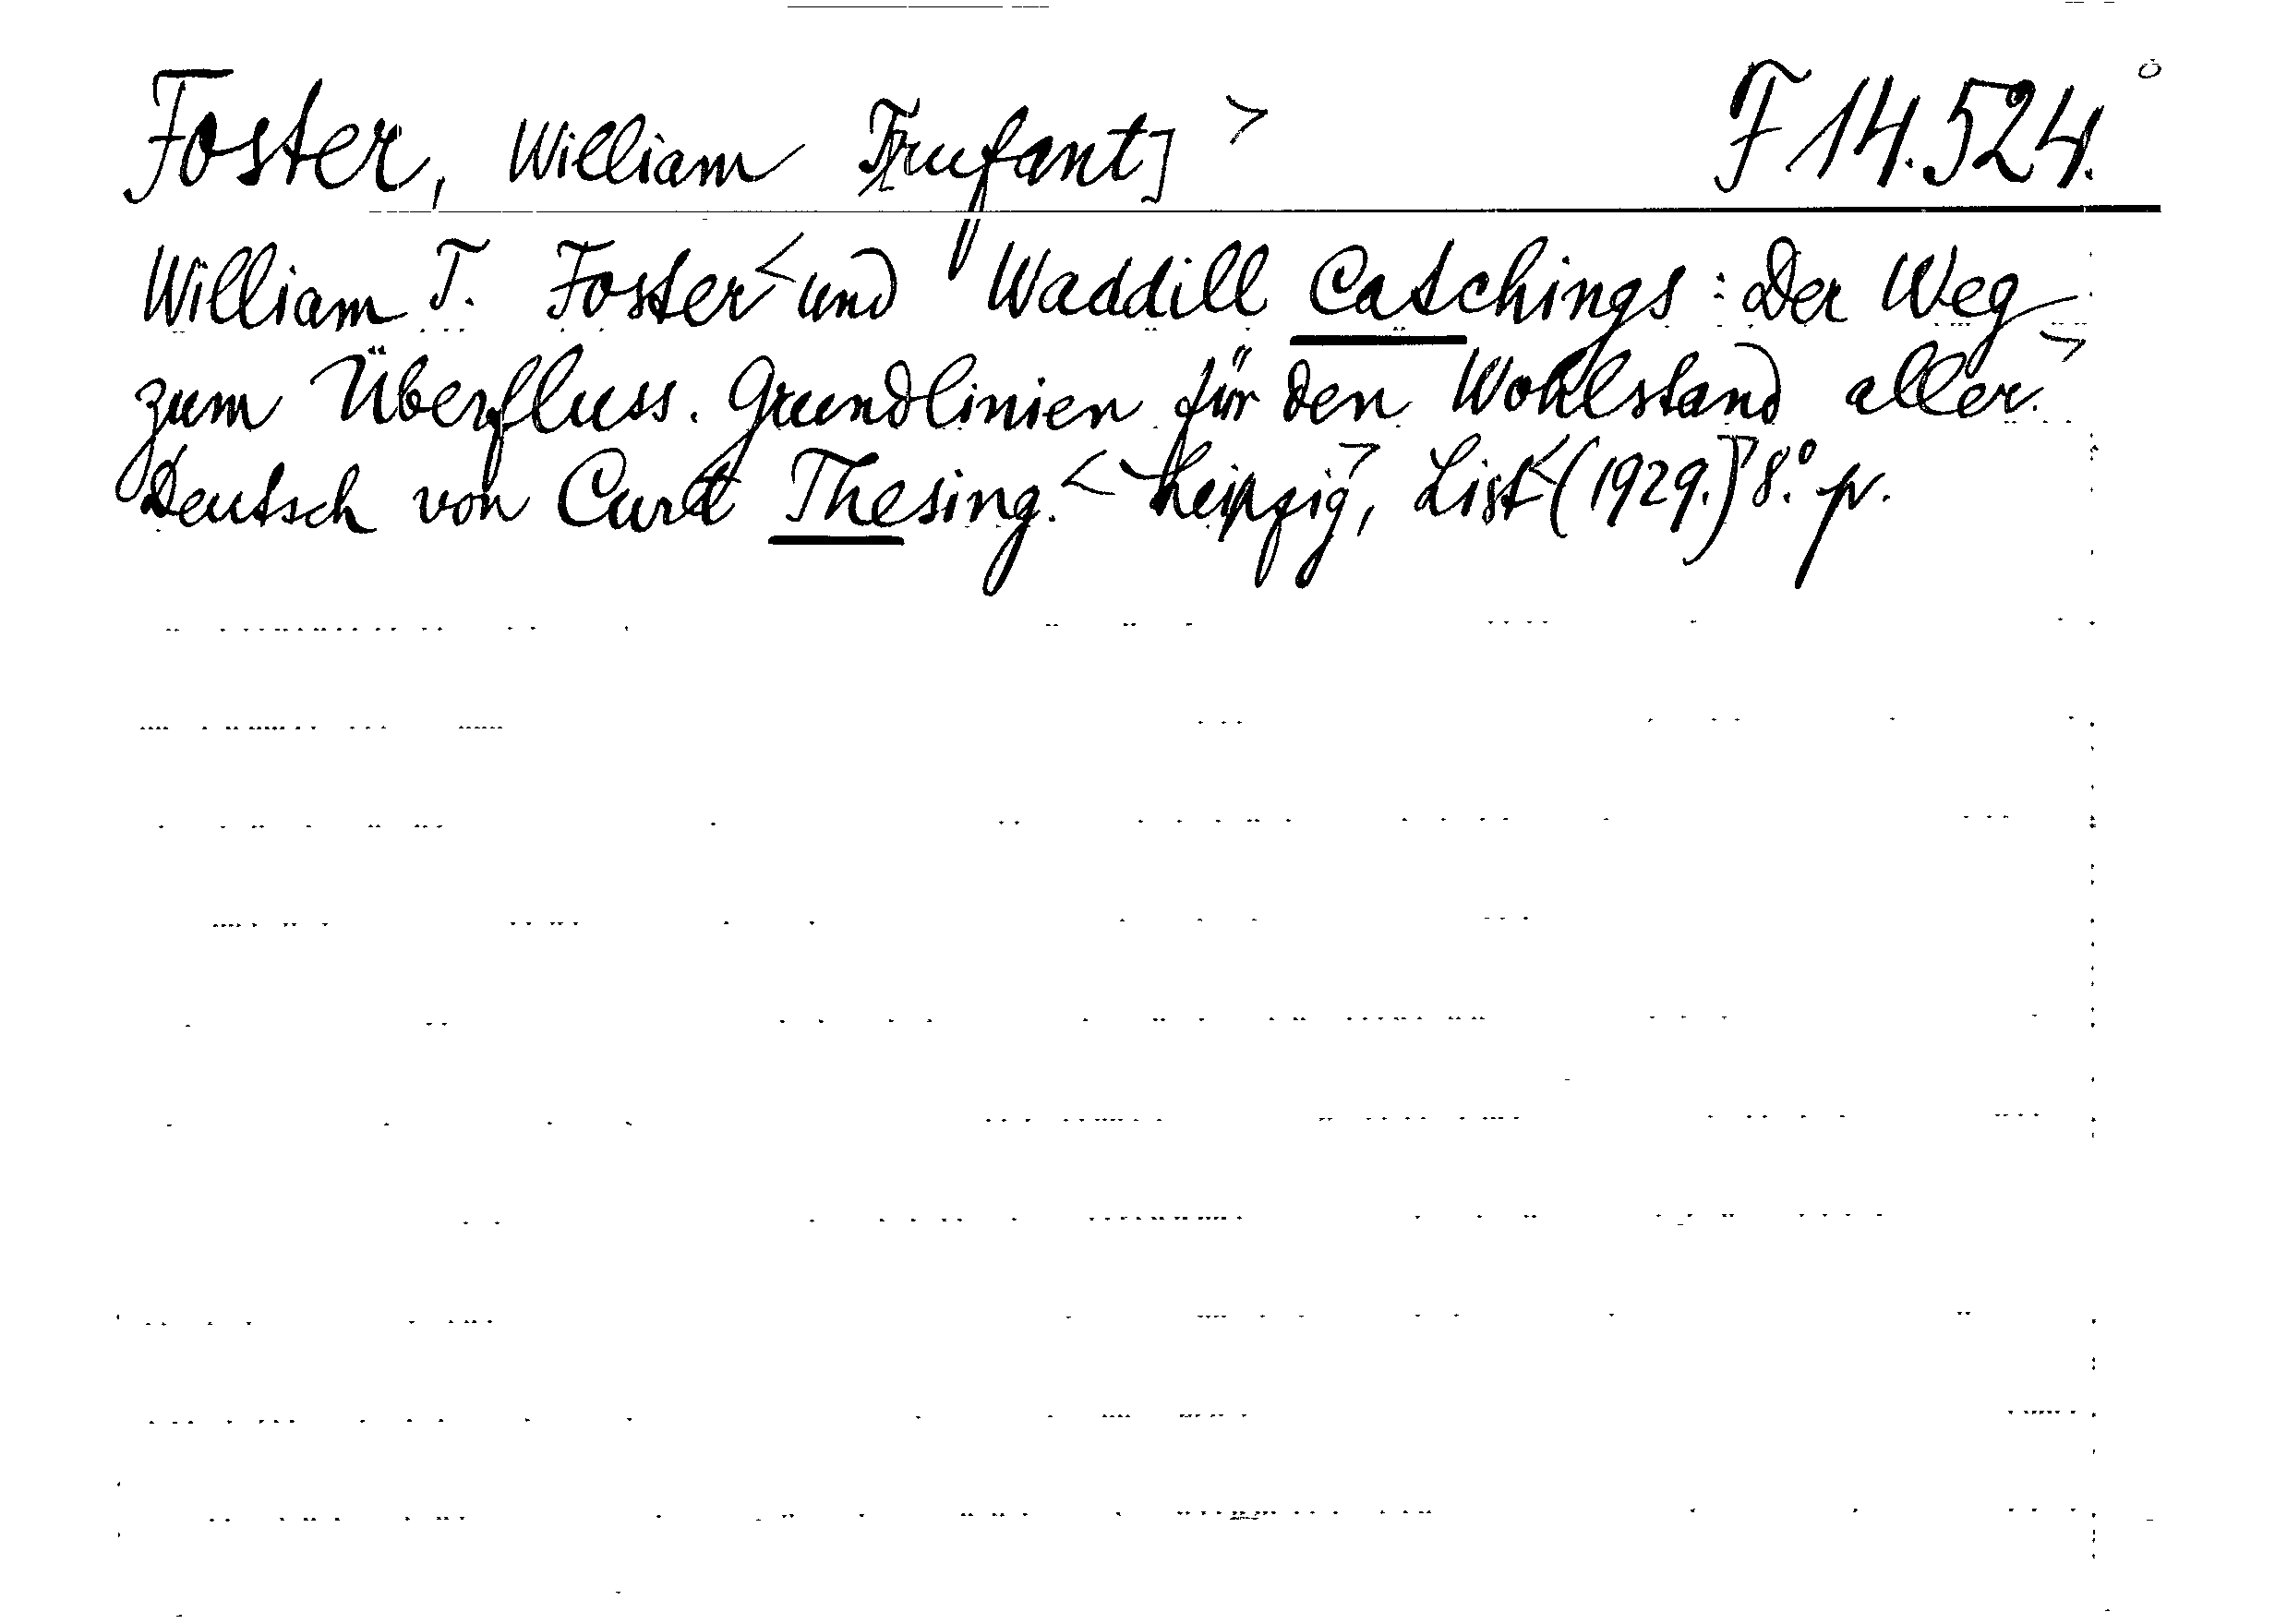 Foster, William Trufant] > F 14.524.
William T. Foster < und Waddill Catchings : Der Weg
zum Überfluss. Grundlinien für den Wohlstand aller. >
Deutsch von Curt Thesing. < Leipzig, > List < (1929.) > 8.° pr.